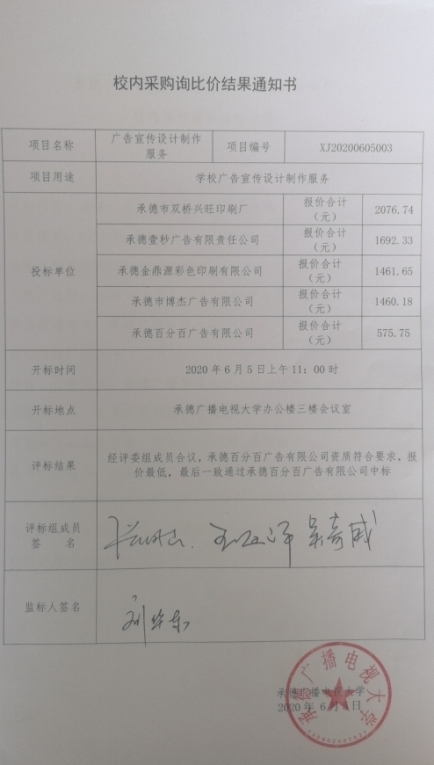 校内采购询比价结果通知书
项目名称
广告宣传设计制作
服务
项目编号
XJ20200605003
项目用途
学校广告宣传设计制作服务
投标单位
承德市双桥兴旺印刷厂
报价合计
（元）
2076.74
承德壹秒广告有限责任公司
报价合计
（元）
1692.33
承德金鼎源彩色印刷有限公司
报价合计
（元）
1461.65
承德市博杰广告有限公司
报价合计
（元）
1460.18
承德百分百广告有限公司
报价合计
（元）
575.75
开标时间
2020 年 6 月 5 日上午 11：00 时
开标地点
承德广播电视大学办公楼三楼会议室
评标结果
经评委组成员会议，承德百分百广告有限公司资质符合要求，报
价最低，最后一致通过承德百分百广告有限公司中标
评标组成员
签 名
监标人签名
承德广播电视大学
承德广播电视大学
2020 年 6 月 日